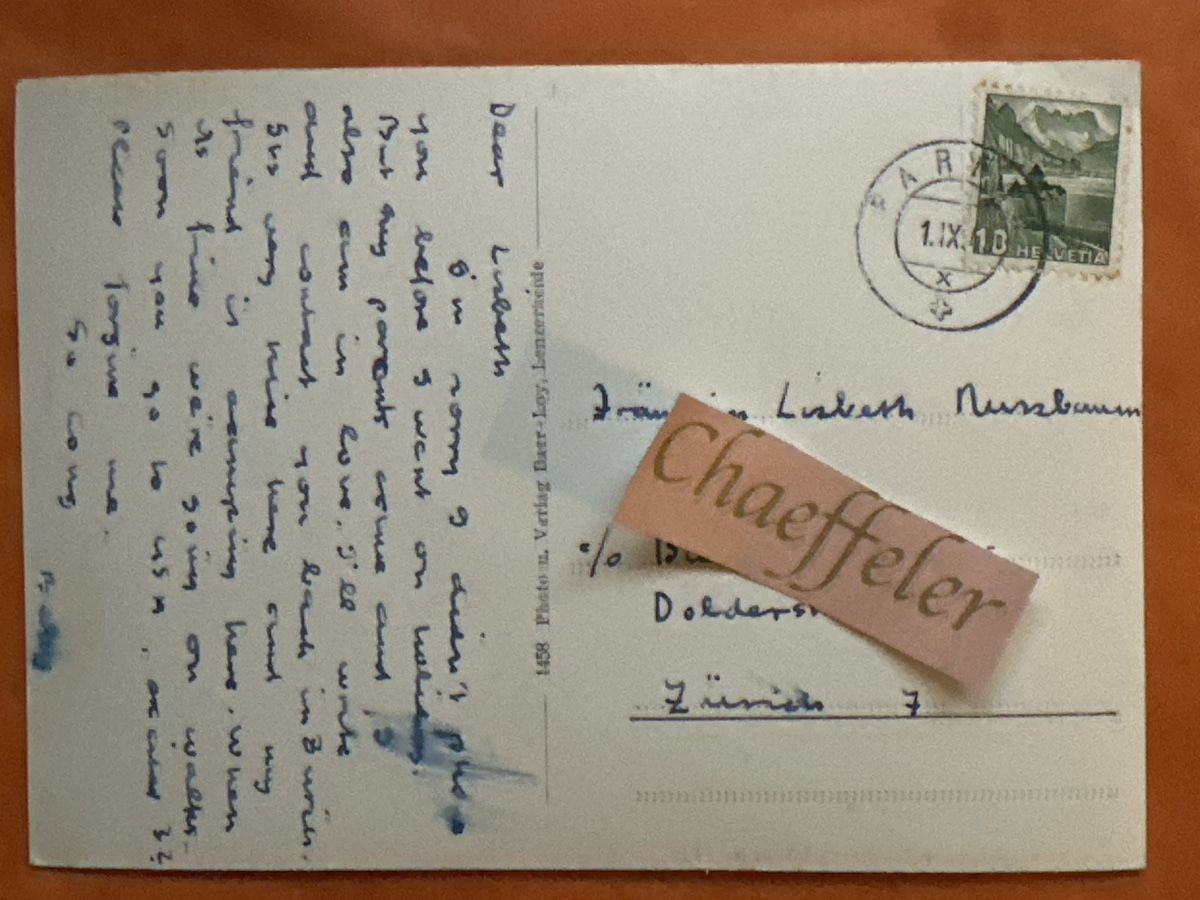 Dear Lisbeth
I'm sorry I didn't phone
you before I went on holiday.
But my parents came and I
also am in love. I'll write
and contact you back in Zürich.
It's very nice here and my
friend is camping here. When
its fine we're going on walks.
Soon you go to USA,
Please forgive me.
So long
1458 Photo u. Verlag Baer-Loy, Lenzerheide
PARP
1.IX.
10 HELVETIA
Lisbeth Nussbaum
Chaeffeler
c/o
Zürich 7